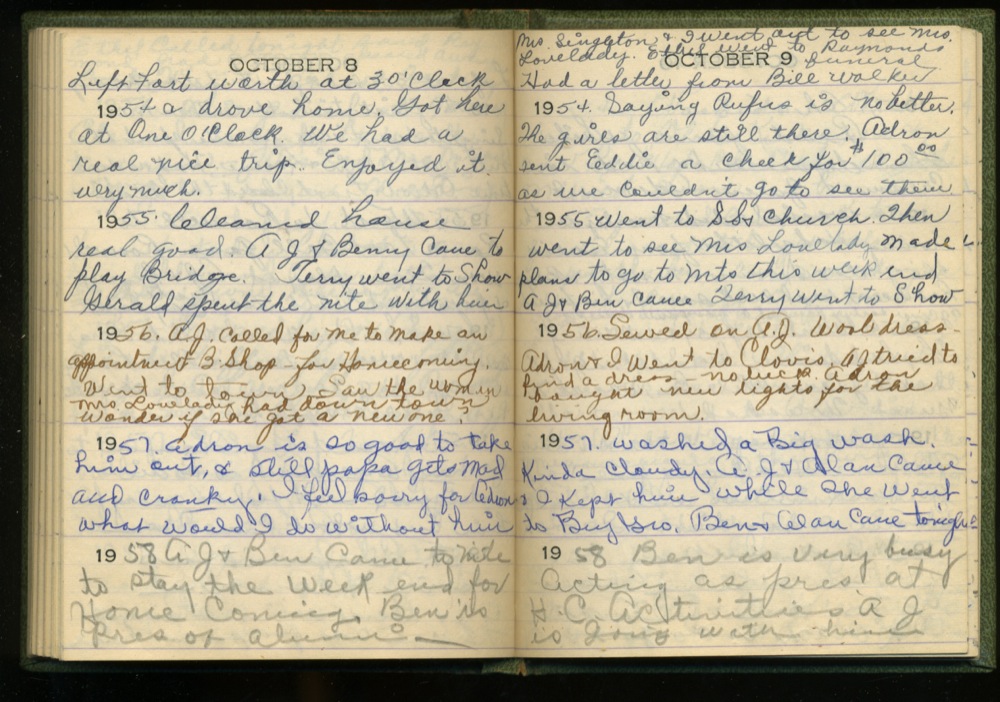 OCTOBER 8
Left Fort worth at 3 O'Clock
1954 & drove home, Got here
at One O'Clock. We had a
real nice trip. Enjoyed it
very much.
1955 Cleaned house
real good. A J & Benny Came to
play Bridge. Terry went to Show
Gerald spent the nite with him
1956. A.J. Called for me to make an
appointment B. Shop - for Homecoming.
Went to town, Saw the woman
Mrs Lovelady had down town
Wonder if she got a new one?
1957. Adron is so good to take
him out, & still papa gets mad
and cranky. I feel sorry for Adron
what would I do without him
1958 A J & Ben Came to nite
to stay the Week end for
Home Coming. Ben is
Pres of alumni
Mrs. Singleton & I went out to see Mrs.
Lovelady. Ethel went to Raymonds
funeral
OCTOBER 9
Had a letter from Bill Walker
1954. Saying Rufus is no better.
The girls are still there. Adron
sent Eddie a check for $100.00
as we couldn't go to see them
1955 Went to SS & Church. Then
went to see Mrs Lovelady made
plans to go to Mts this week end
A J & Ben Came Terry Went to Show
1956. Sewed on A.J. Wool dress -
Adron & I Went to Clovis. AJ tried to
find a dress - no luck. Adron
bought new lights for the
living room.
1957. Washed a Big wash.
Kinda Cloudy. A. J & Alan Came
& I Kept him while she Went
to Buy Gro. Ben & Alan Came tonight
1958 Ben is Very busy
Acting as pres at
H.C. Activities A J
is going with him